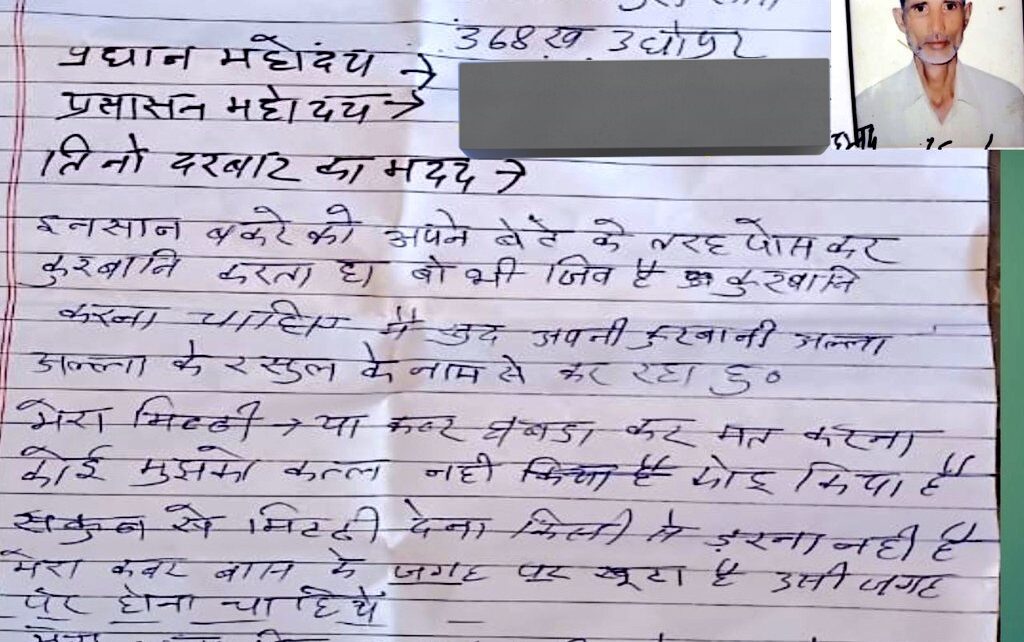 368 ख उधोपुर
प्रधान महोदय →
प्रसासन महोदय →
तिनो दरबार का मदद →
इनसान बकरे को अपने बेटे के तरह पोस कर
कुरबानि करता है। वो भी जिव है कुरबानि
करना चाहिए मै खुद अपनी कुरबानी अल्ला
अल्ला के रसुल के नाम से कर रहा हु०
मेरा मिट्टी → या कबर घबडा कर मत करना
कोई मुझको कत्ल नही किया है
सकुन से मिट्टी देना किसी से डरना नही है
मेरा कबर बास के जगह पर खूटा है उसी जगह
पर होना चाहिये